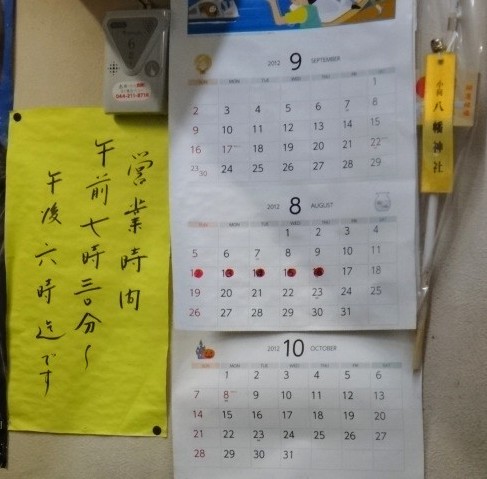 営業時間
午前七時三〇分〜
午後六時迄です
044-211-8714
2012 9 SEPTEMBER
SUN MON TUE WED THU FRI SAT
1
2 3 4 5 6 7 8
9 10 11 12 13 14 15
16 17 18 19 20 21 22
23 30 24 25 26 27 28 29
2012 8 AUGUST
1 2 3 4
5 6 7 8 9 10 11
12 13 14 15 16 17 18
19 20 21 22 23 24 25
26 27 28 29 30 31
2012 10 OCTOBER
1 2 3 4 5 6
7 8 9 10 11 12 13
14 15 16 17 18 19 20
21 22 23 24 25 26 27
28 29 30 31
八幡神社